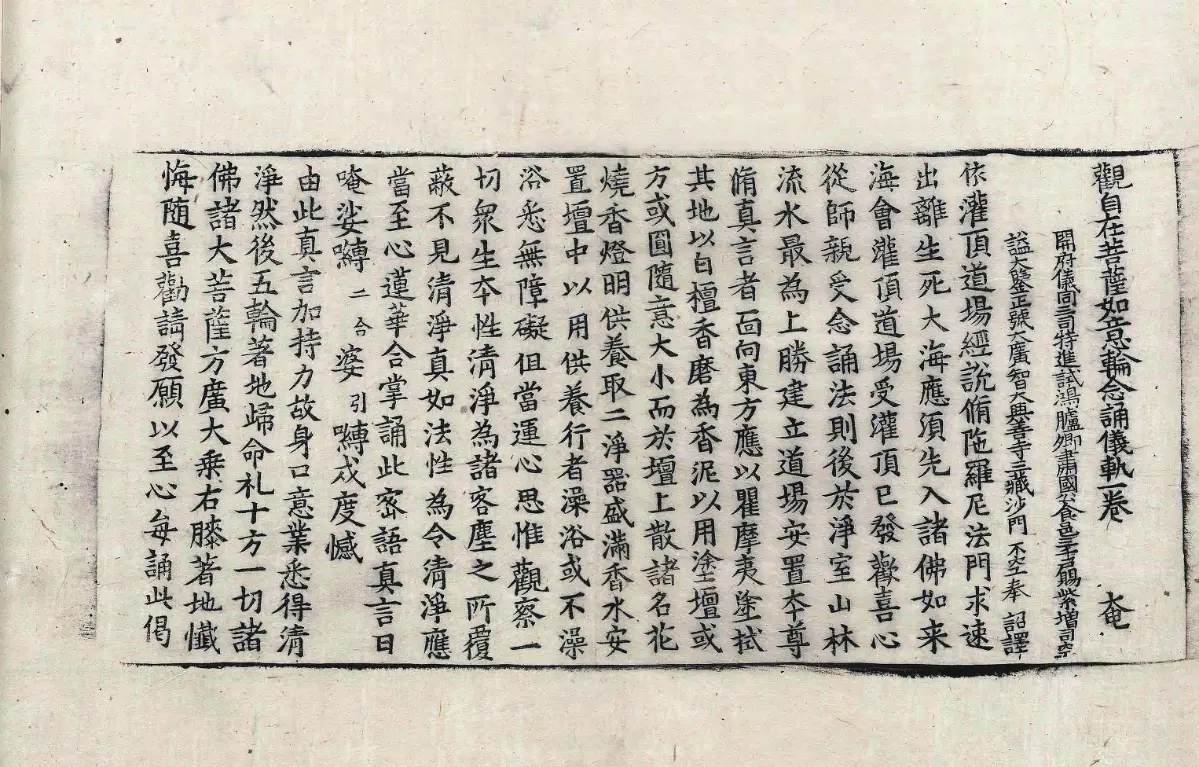 觀自在菩薩如意輪念誦儀軌一卷 奄
開府儀同三司特進試鴻臚卿肅國公食邑三千戶賜紫贈司空
諡大鑒正號大廣智大興善寺三藏沙門不空奉 詔譯
依灌頂道場經說脩陁羅尼法門求速
出離生死大海應須先入諸佛如来
海會灌頂道場受灌頂已發歡喜心
從師親受念誦法則後於淨室山林
流水最為上勝建立道場安置夲尊
脩真言者面向東方應以瞿摩夷塗拭
其地以白檀香磨為香泥以用塗壇或
方或圓隨意大小而於壇上散諸名花
燒香燈明供養取二淨器盛滿香水安
置壇中以用供養行者澡浴或不澡
浴悉無障礙但當運心思惟觀察一
切衆生夲性清淨為諸客塵之所覆
蔽不見清淨真如法性為令清淨應
當至心蓮華合掌誦此密語真言曰
唵娑嚩 二合 婆 引 嚩戍度憾
由此真言加持力故身口意業悉得清
淨然後五輪著地歸命礼十方一切諸
佛諸大菩薩方廣大乘右膝著地懺
悔随喜勸請發願以至心每誦此偈